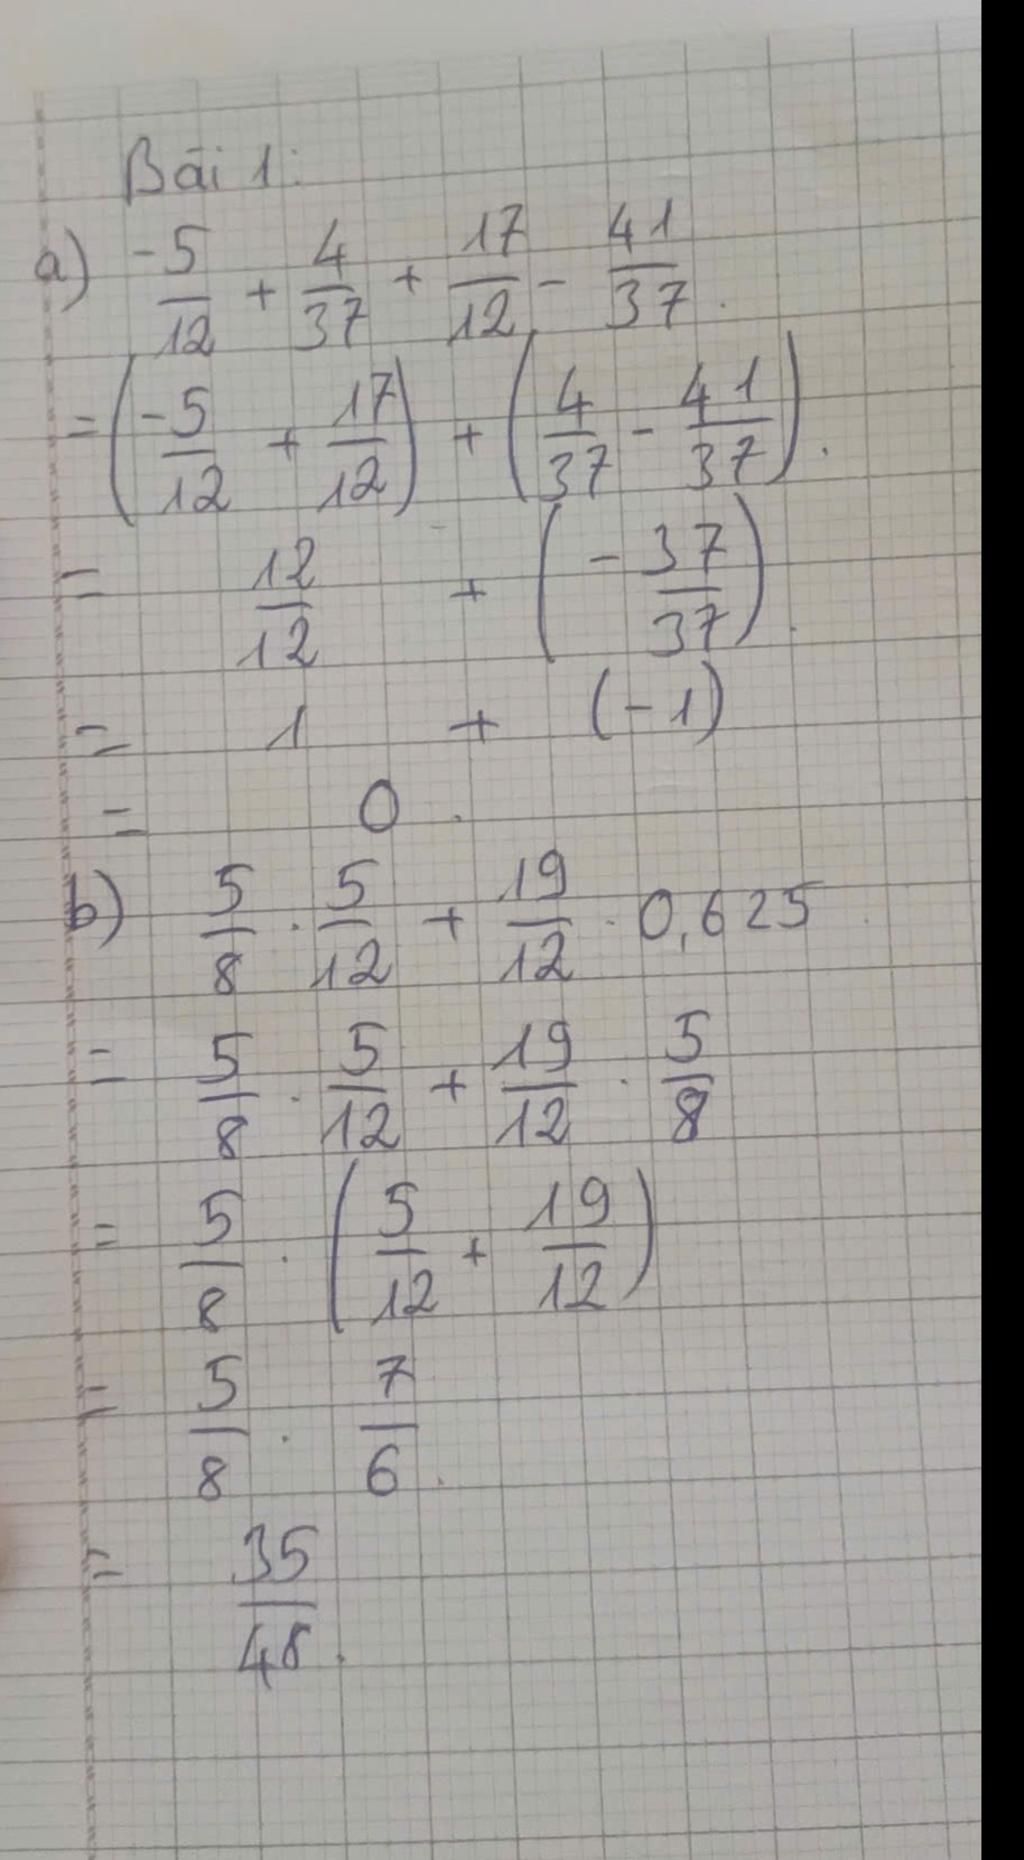 Bài 1:
a) -5/12 + 4/37 + 17/12 - 41/37.
= (-5/12 + 17/12) + (4/37 - 41/37).
= 12/12 + (-37/37).
= 1 + (-1)
= 0.
b) 5/8 . 5/12 + 19/12 . 0,625
= 5/8 . 5/12 + 19/12 . 5/8
= 5/8 . (5/12 + 19/12)
= 5/8 . 7/6.
= 35/48.